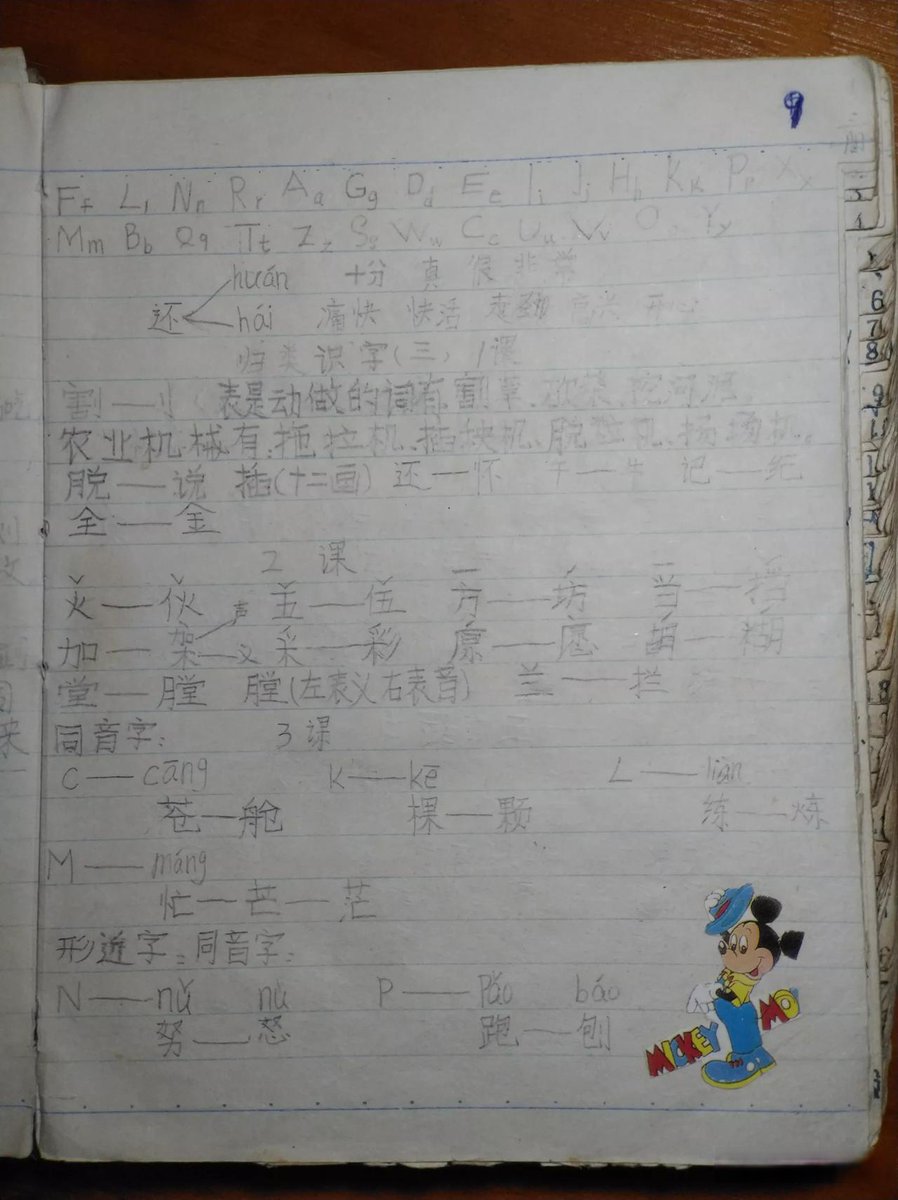 9
Ff Ll Nn Rr Aa Gg Dd Ee Ii Jj Hh Kk Pp Xx
Mm Bb Qq Tt Zz Ss Ww Cc Uu Vv O Yy
huán 十分 真 很 非常
还 hái 痛快 快活
归类识字(三) 1课
割——刂 表是动做的词有:割草、
农业机械有:拖拉机、插秧机、脱粒机、扬场机。
脱——说 插(十二画) 还——怀 干——牛 记——纪
全——金
2 课
火——伙 五——伍 方——坊 当——挡
加——架 声 义 采——彩 原——愿 胡——糊
堂——膛 膛(左表义右表音) 兰——拦
同音字: 3课
C——cāng K——kē L——liàn
苍—舱 棵—颗 练——炼
M——máng
忙—芒—茫
形近字:同音字:
N——nǔ nù P——pǎo báo
努——怒 跑——刨
MICKEY MO
6
7
8